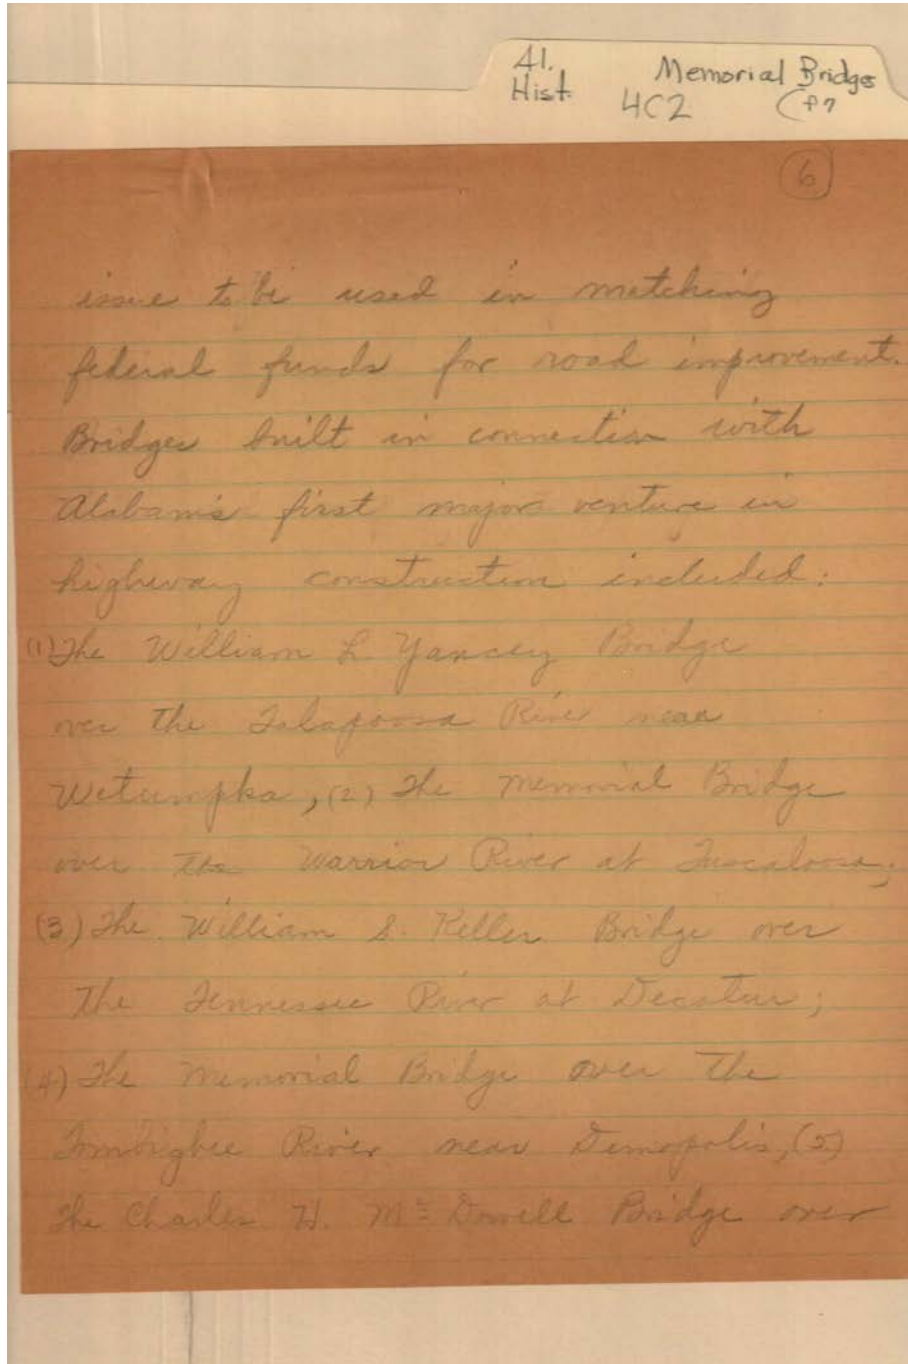 41. Memorial Bridges
Hist. 4C2
6
issue to be used in matching
federal funds for road improvement.
Bridges built in connection with
Alabama's first major venture in
highway construction included:
(1) The William L. Yancey Bridge
over the Talapoosa River near
Wetumpka, (2) The Memorial Bridge
over the Warrior River at Tuscaloosa;
(3) The William S. Keller Bridge over
the Tennessee River at Decatur;
(4) The Memorial Bridge over the
Tombigbee River near Demopolis, (5)
The Charles H. McDowell Bridge over